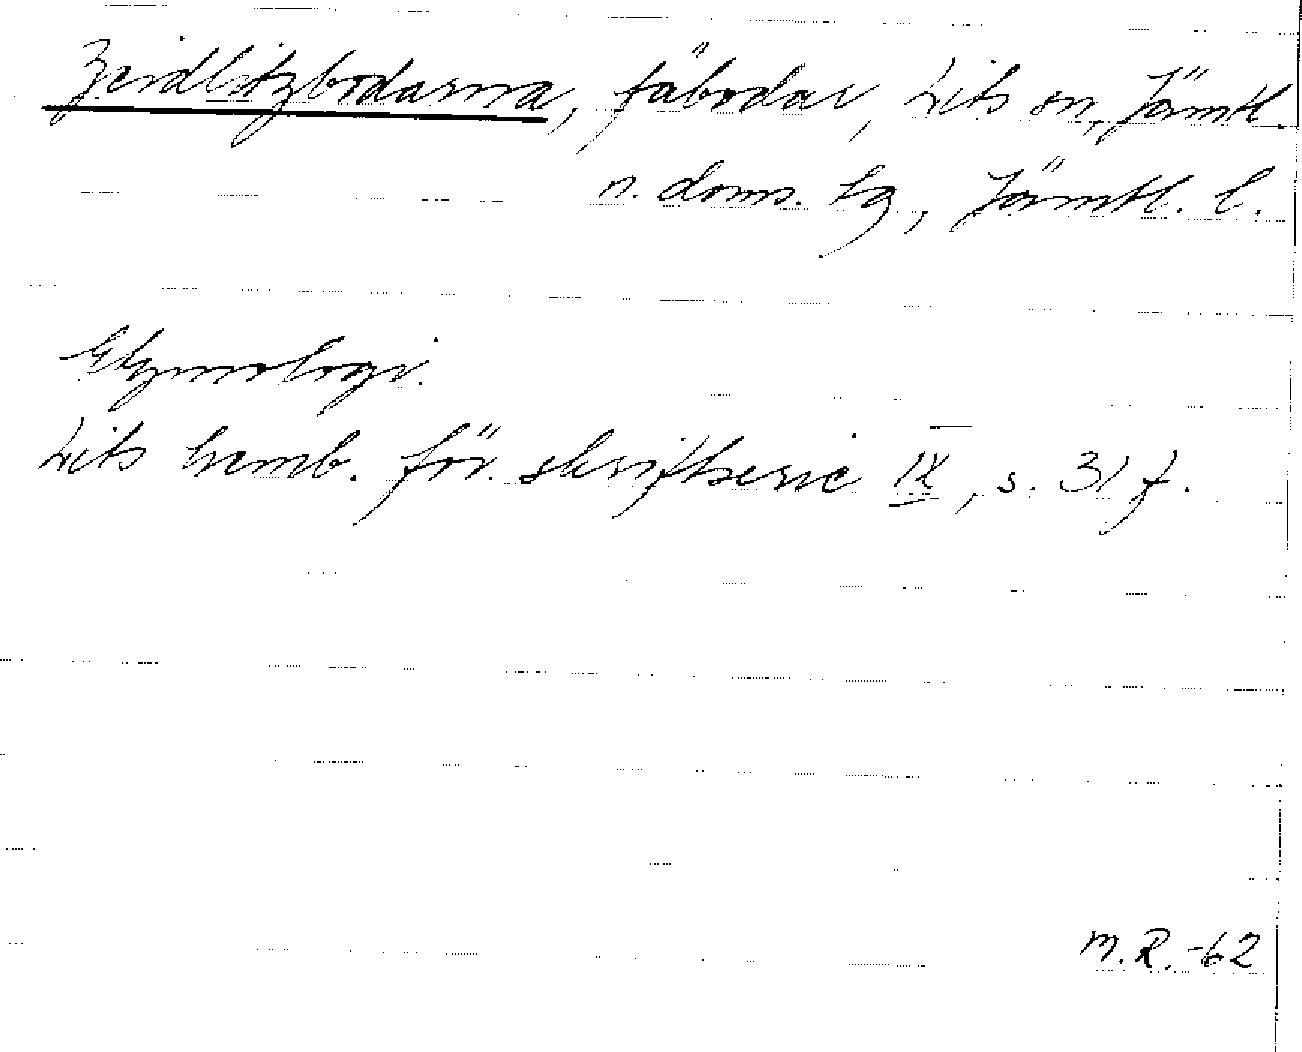 Zeidlitzbodarna, fäbodar, Lits sn, Jämtl.
n. doms. tg, Jämtl. l.
Etymologi.
Lits hemb. för. skriftserie IX, s. 31 f.
M.R. -62